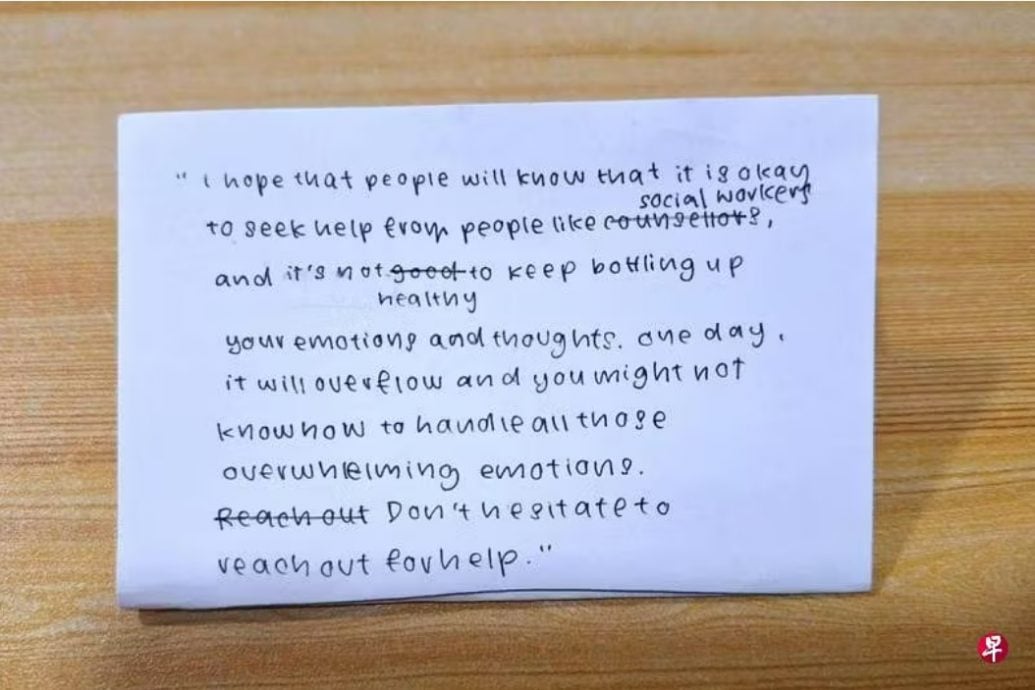 " i hope that people will know that it is okay
social workers
to seek help from people like counsellors,
and it's not good to keep bottling up
healthy
your emotions and thoughts. one day,
it will overflow and you might not
know how to handle all those
overwhelming emotions.
Reach out Don't hesitate to
reach out for help."
早